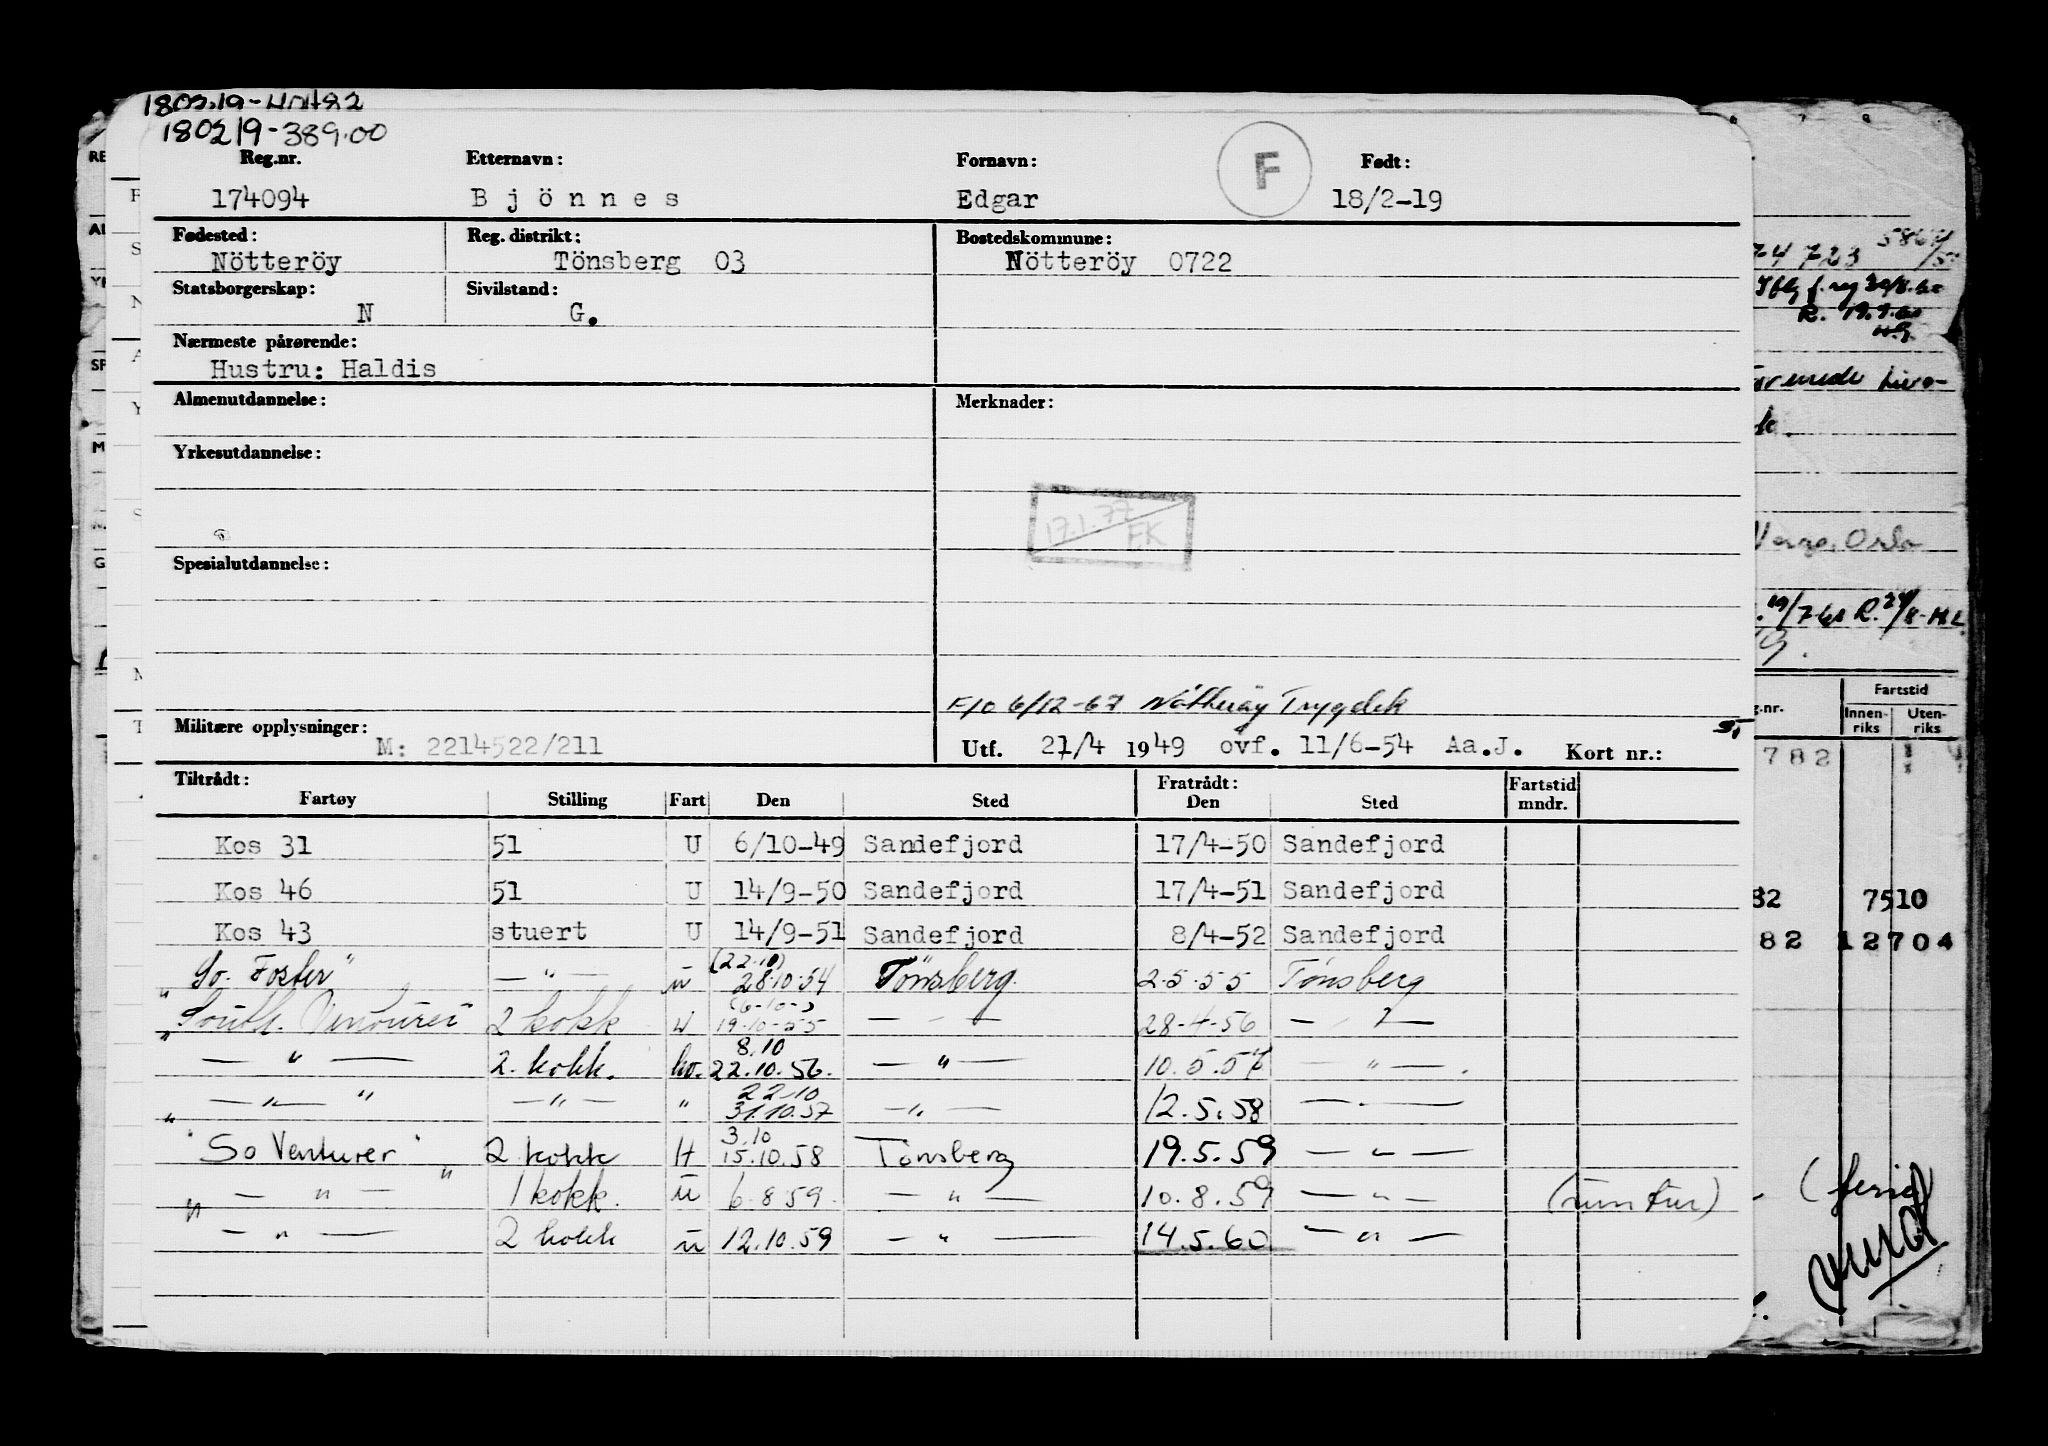 180219-389.00
Reg.nr. Etternavn: Fornavn: F Født:
174094 Bjönnes Edgar 18/2-19
Fødested: Reg. distrikt: Bostedskommune:
Nötteröy Tönsberg 03 Nötteröy 0722
Statsborgerskap: Sivilstand:
N G.
Nærmeste pårørende:
Hustru: Haldis
Almenutdannelse: Merknader:
Yrkesutdannelse:
17.1.77 EK
Spesialutdannelse:
F/o 6/12-67 Nötteröy Trygdek
Militære opplysninger:
M: 2214522/211 Utf. 21/4 1949 ovf. 11/6-54 Aa.J. Kort nr.:
Tiltrådt: Fratrådt: Fartstid
Fartøy Stilling Fart Den Sted Den Sted mndr.
Kos 31 51 U 6/10-49 Sandefjord 17/4-50 Sandefjord
Kos 46 51 U 14/9-50 Sandefjord 17/4-51 Sandefjord
Kos 43 stuert U 14/9-51 Sandefjord 8/4-52 Sandefjord
(22.10)
So. Foster" — " — u 28.10.54 Tönsberg. 2.5.55 Tönsberg
"South. Venturer 2 kokk 19.10-55 — - — 28-4-56 — " —
8.10
— " — 2. kokk. ho. 22.10.56. — " — 10.5.57 — " — .
22.10
— " — " — " — " 31.10.57 — " — 12.5.58 — " —
3.10
"So Venturer" 2 kokk H 15.10.58 Tönsberg 19.5.59 — " —
" — " — 1 kokk. ü 6.8.59. — " — 10.8.59 — " — (rum tur)
" — " — 2 kokk ü 12.10.59 — " — 14.5.60 — " —
74723
R. 19.9.60
Oslo
Fartstid
g.nr. Innen-riks Uten-riks
782
82 7510
82 12704